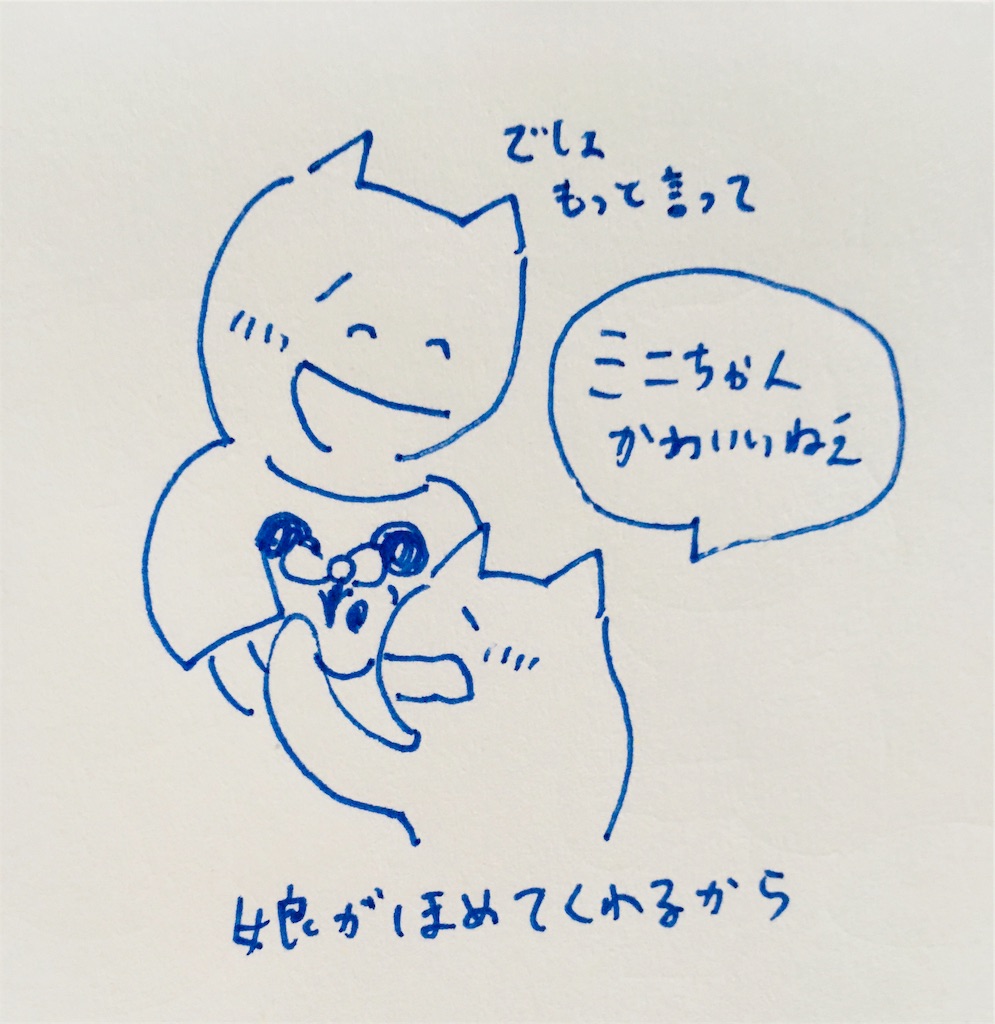 でしょ
もっと言って
ミニちゃん
かわいいねぇ
娘がほめてくれるから